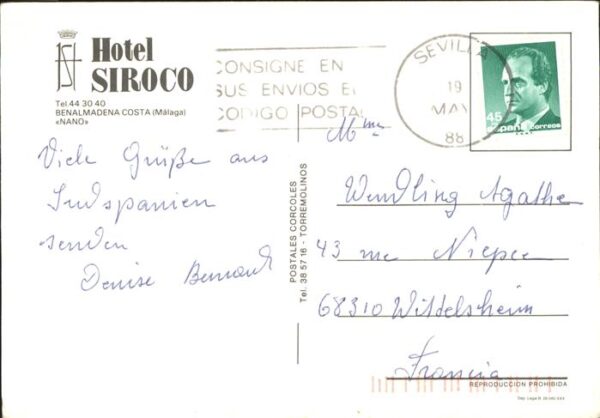 Hotel
SIROCO
Tel. 44 30 40
BENALMADENA COSTA (Málaga)
«NANO»
CONSIGNE EN
SUS ENVIOS E
CODIGO POSTA
SEVILLA
19
MAY
88
45
españa correos
Viele Grüße aus
Südspanien
senden
Denise Bernard
POSTALES CORCOLES
Tel. 38 57 16 - TORREMOLINOS
Mme
Wendling Agathe
43 rue Niepce
68310 Wittelsheim
Francia
REPRODUCCION PROHIBIDA